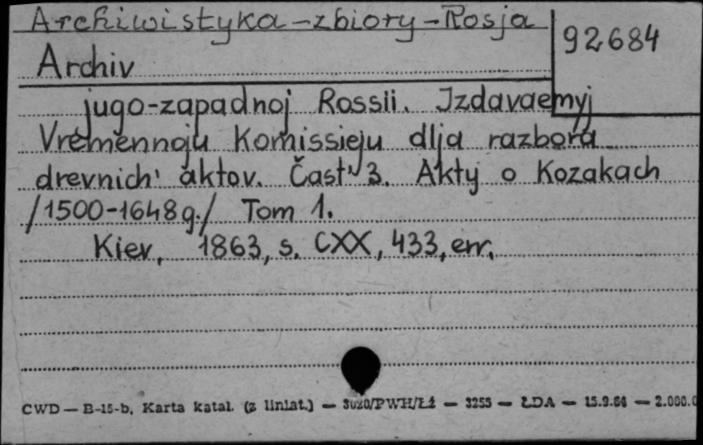 Archiwistyka - zbiory - Rosja
92684
Archiv
jugo-zapadnoj Rossii. Izdavaemyj
Vremennoju Komissieju dlja razbora
drevnich' aktov. Čast' 3. Akty o Kozakach
/1500-1648g./ Tom 1.
Kiev, 1863, s. CXX, 433, err.
CWD — B-15-b. Karta katal. (z liniat.) — 3020/PWH/Łź — 3255 — ŁDA — 15.9.64 — 2.000.0